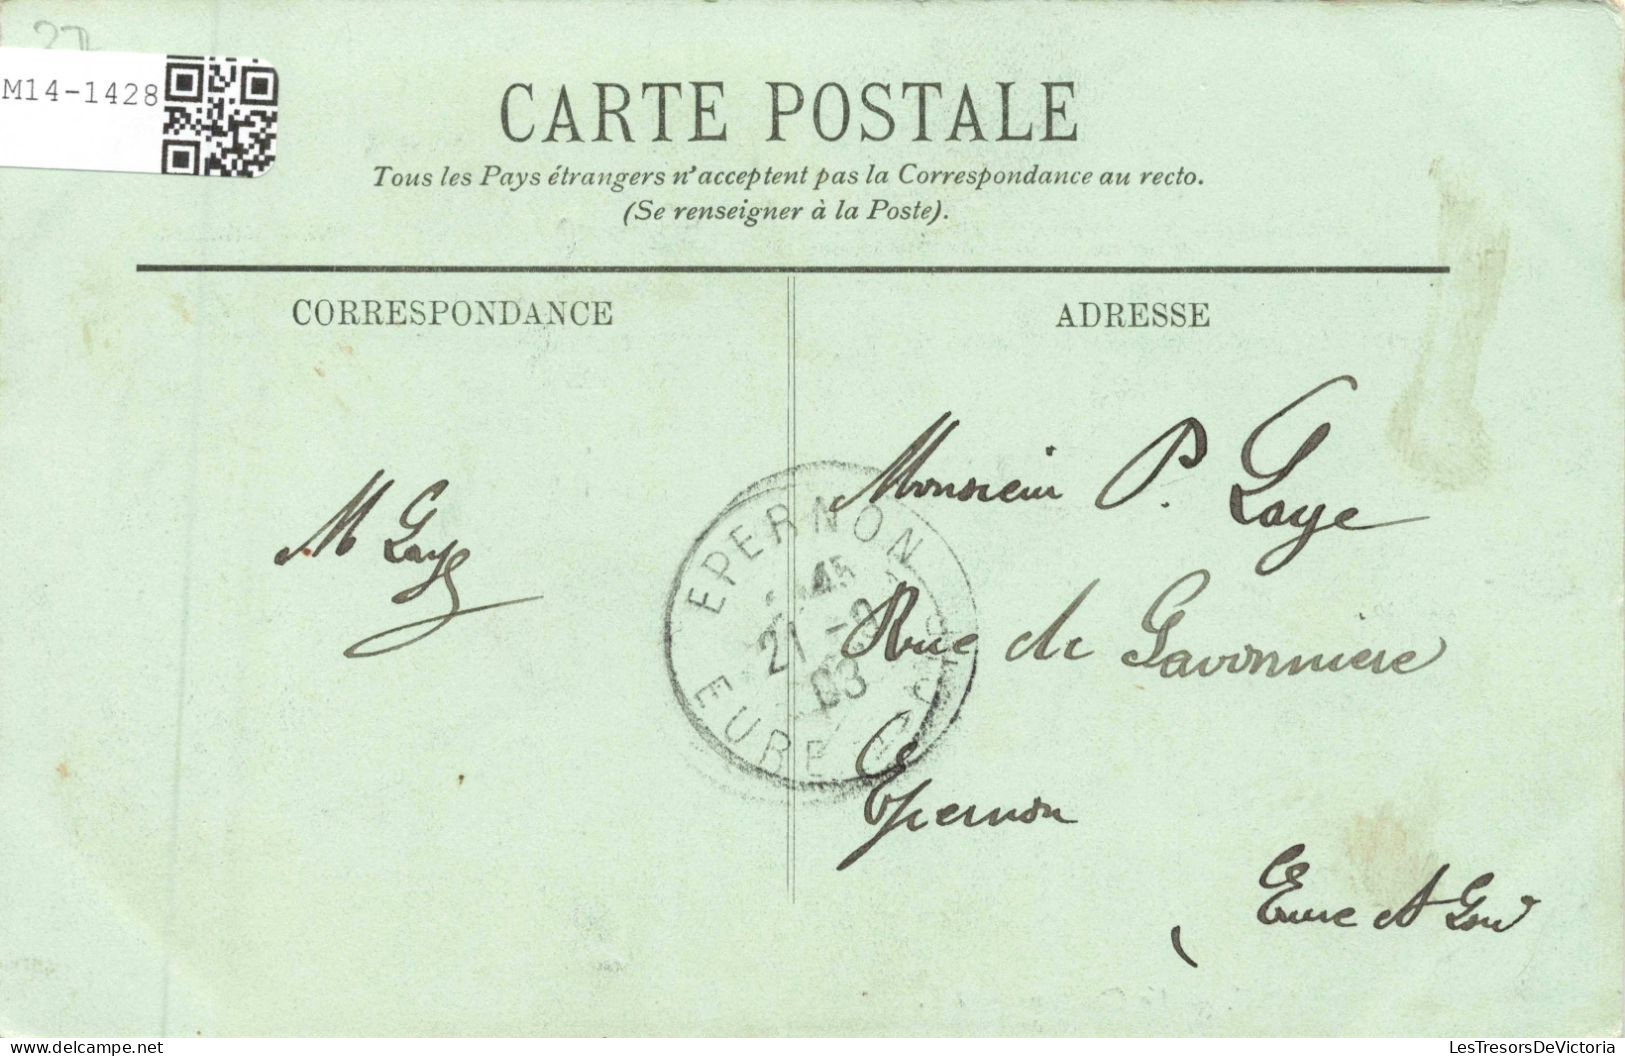 27
M14-1428
CARTE POSTALE
Tous les Pays étrangers n'acceptent pas la Correspondance au recto.
(Se renseigner à la Poste).
CORRESPONDANCE
ADRESSE
M Laye
EPERNON
21 -9
03
EURE
Monsieur P. Laye
Rue de Savonniere
Epernon
Eure et Loir
LesTresorsDeVictoria